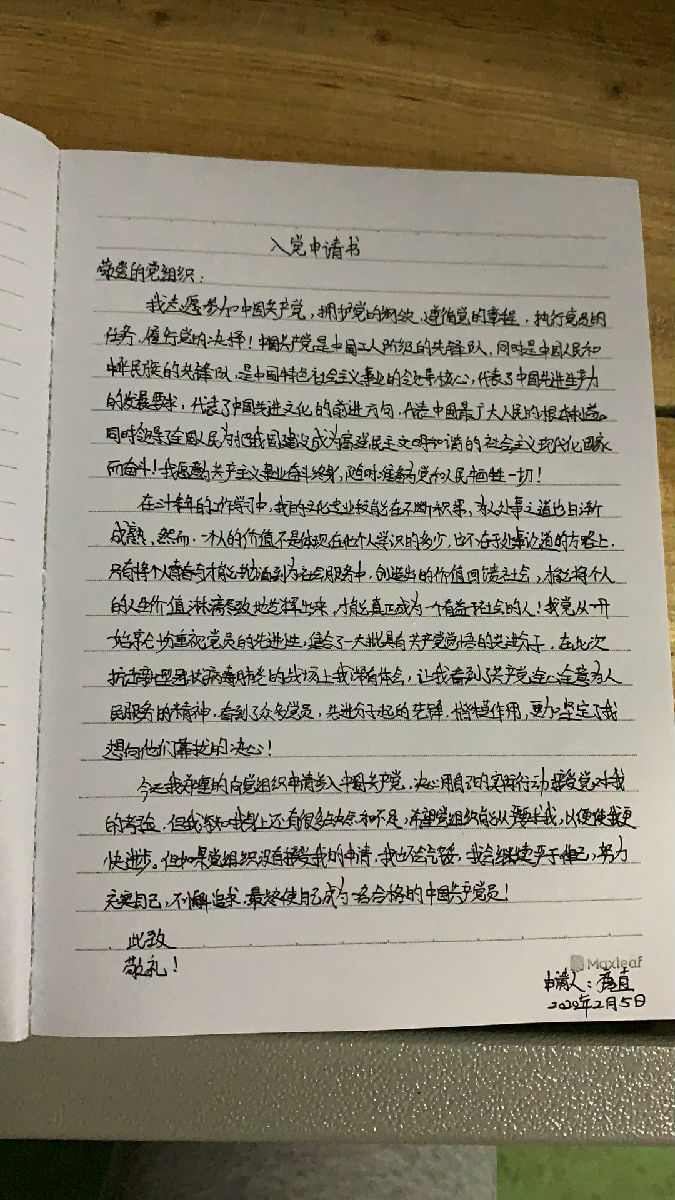 入党申请书
敬爱的党组织：
我志愿参加中国共产党，拥护党的纲领，遵循党的章程，执行党员的
任务，履行党的决择！中国共产党是中国工人阶级的先锋队，同时是中国人民和
中华民族的先锋队，是中国特色社会主义事业的领导核心，代表了中国先进生产力
的发展要求，代表了中国先进文化的前进方向，代表中国最广大人民的根本利益。
同时领导全国人民为把我国建设成为富强民主文明和谐的社会主义现代化国家
而奋斗！我愿为共产主义事业奋斗终身，随时准备为党和人民牺牲一切！
在二十来年的工作学习中，我的文化专业技能在不断积累，为人处事之道也日渐
成熟，然而，一个人的价值不是体现在他个人学识的多少，也不在于处事之道的方略上，
只有将个人青春与才能投涵到为社会服务中，创造出的价值回馈社会，才能将个人
的人生价值淋漓尽致地发挥出来，才能真正成为一个有益于社会的人！我党从一开
始就十分重视党员的先进性，集合了一大批具有共产党觉悟的先进分子，在此次
抗击新型冠状病毒肺炎的战场上我深有体会，让我看到了共产党全心全意为人
民服务的精神，看到了众多党员，先进分子起的先锋、楷模作用，更加坚定了我
想向他们靠拢的决心！
今天我郑重的向党组织申请参入中国共产党，决心用自己的实际行动接受党对我
的考验，但我深知我身上还有很多缺点和不足，希望党组织能从严要求我，以便使我更
快进步。但如果党组织没有接受我的申请，我也不会气馁，我会继续严于律己，努力
充实自己，不懈追求，最终使自己成为一名合格的中国共产党员！
此致
敬礼！
Maxleaf
申请人：
2020年2月5日